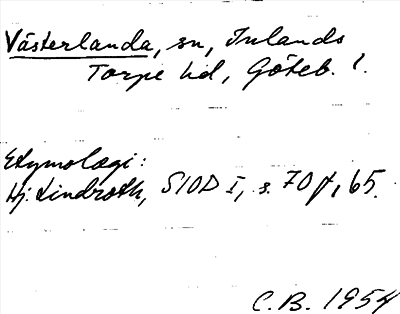 Västerlanda, sn, Inlands
Torpe hd, Göteb. l.
Etymologi:
Hj. Lindroth, SIOD I, s. 70 f, 65.
C.B. 1954